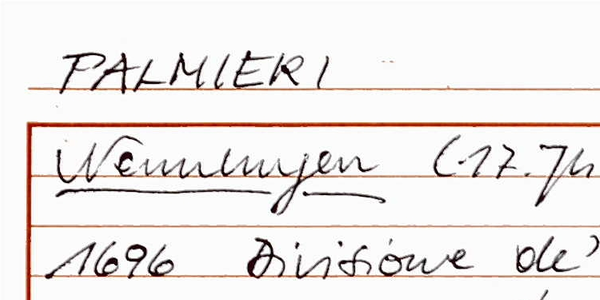 PALMIERI
Wemmingen (17. Jh
1696 Divisione de'